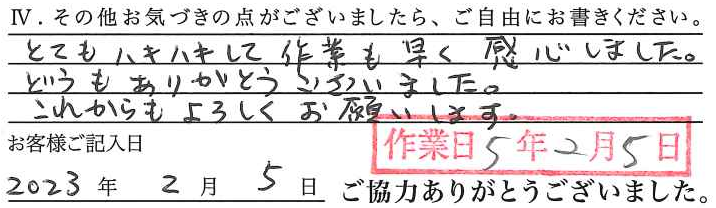 Ⅳ．その他お気づきの点がございましたら、ご自由にお書きください。
とてもハキハキして作業も早く感心しました。
どうもありがとうございました。
これからもよろしくお願いします。
お客様ご記入日
作業日5年2月5日
2023年2月5日
ご協力ありがとうございました。